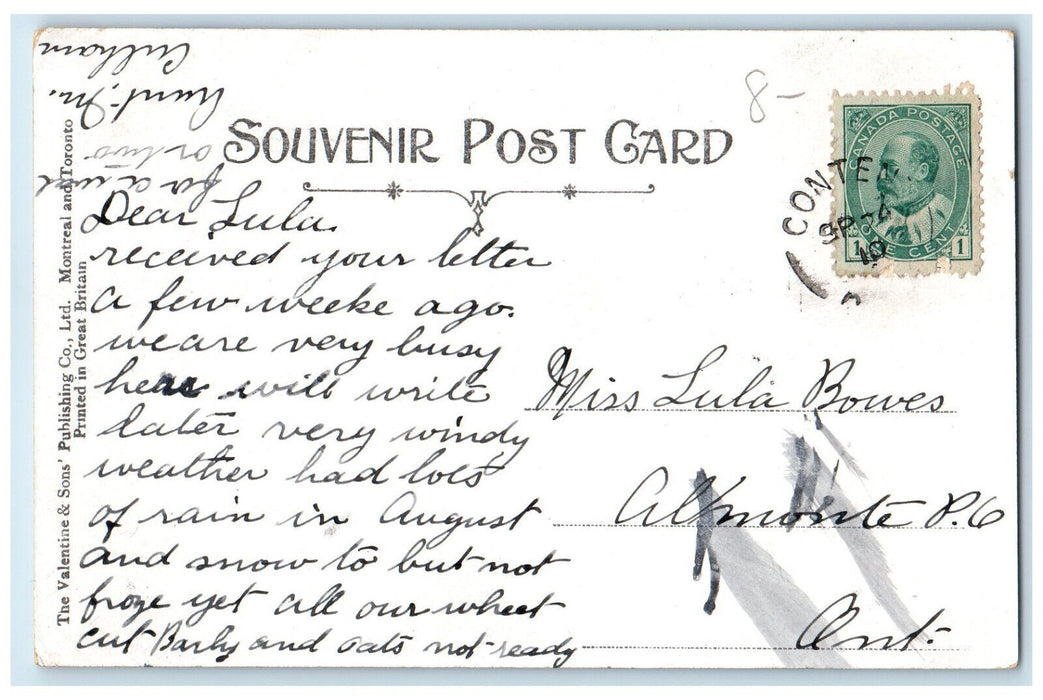 SOUVENIR POST CARD
8-
CANADA POSTAGE
ONE CENT
1 1
CONTEN
SP 24
10
The Valentine & Sons' Publishing Co., Ltd. Montreal and Toronto
Printed in Great Britain
Dear Lula.
received your letter
a few weeke ago.
we are very busy
here will write
later very windy
weather had lots
of rain in August
and snow to but not
froze yet all our wheet
cut Barly and oats not ready
for a week
or two
Aunt, M.
Culham
Miss Lula Bowes
Almonte P.O
Ont.